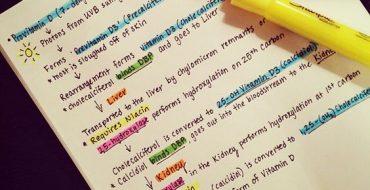 Previtamin D (7-de
Photons from UVB sun
Forms Previtamin D3 (Precalcif
* host is sloughed off of skin
Rearrangement forms Vitamin D3 (Cholecalcif
* cholecalciferol binds DBP and goes to Liver
Liver
Transported to the liver by chylomicron remnants or
* Requires Niacin
25-hydroxylase performs hydroxylation on 25th carbon
Cholecalciferol is converted to 25-OH Vitamin D3 (Calcidio
* Calcidiol binds DBP goes out into the bloodstream to the Kidne
Kidney
in the Kidney performs hydroxylation at 1st carbon
(Calcidiol) is converted to
form of Vitamin D